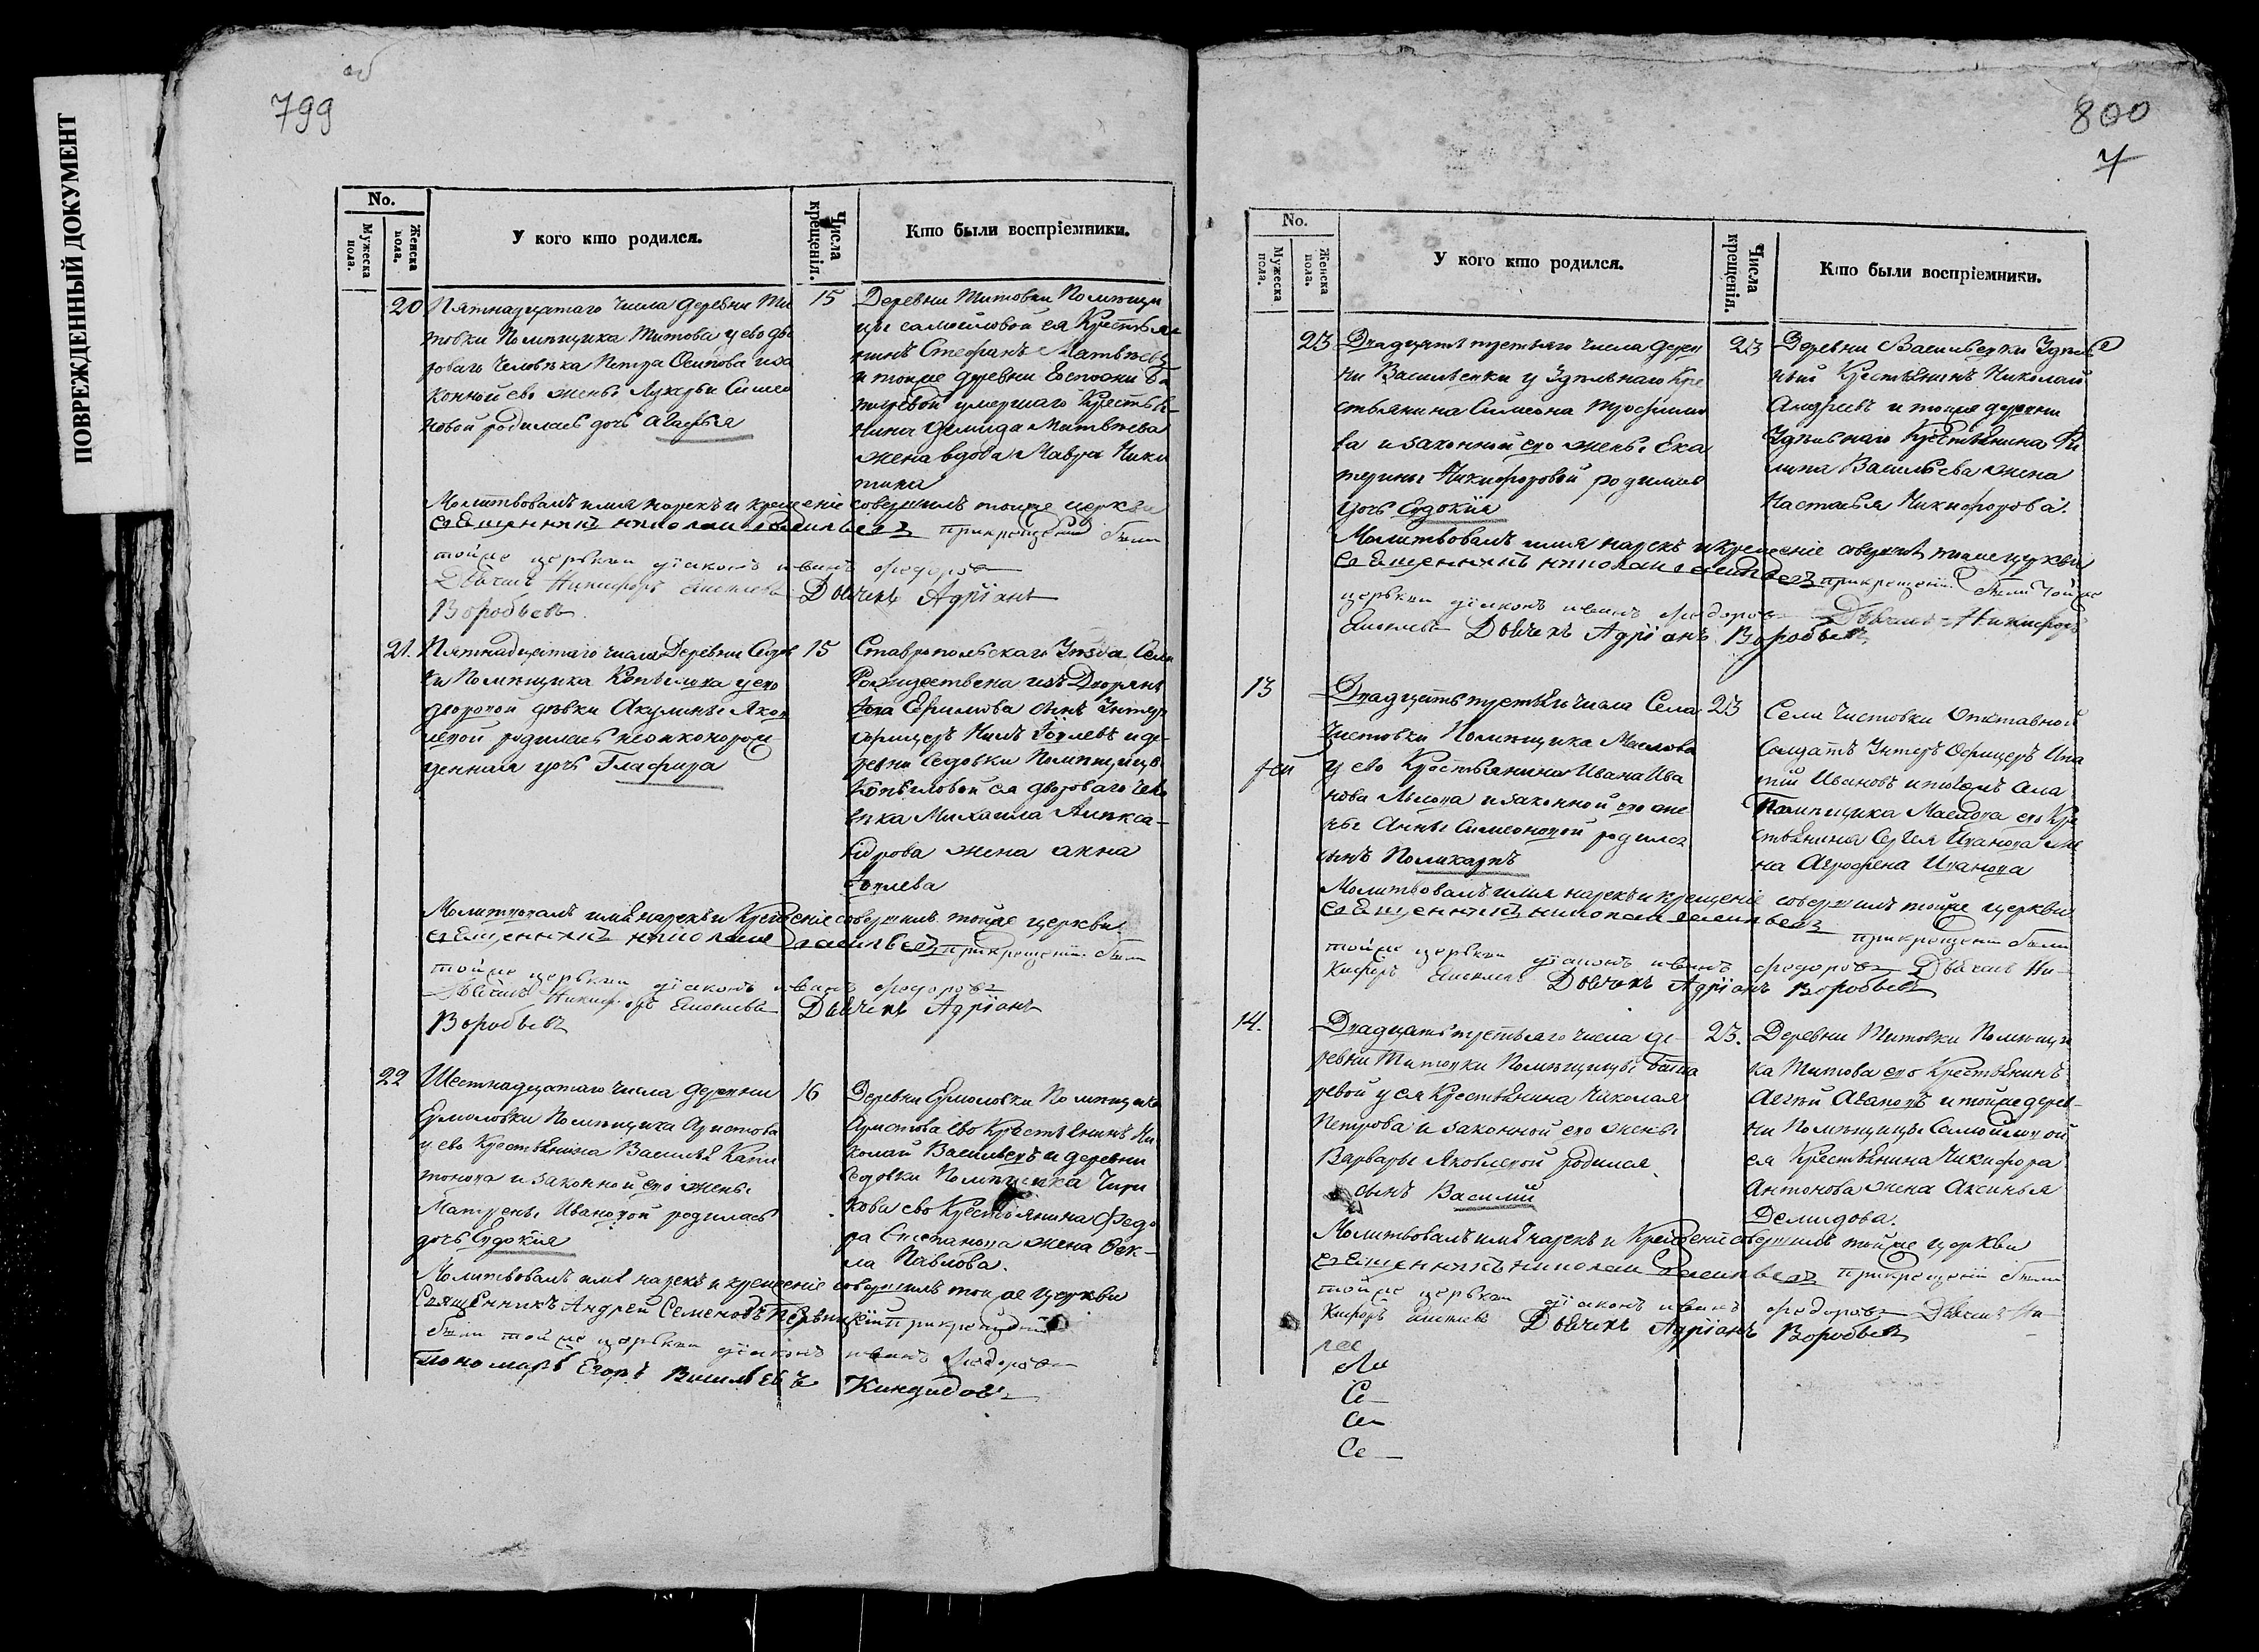 ПОВРЕЖДЕННЫЙ ДОКУМЕНТ
об
799
No.
Мужеска пола.
Женска пола.
У кого кто родился.
Числа крещенія.
Кто были воспріемники.
20
Пятнадцатаго числа деревни Ти
товки Помѣщика Титова у ево дво
роваго человѣка Петра Осипова и за
конной ево жены Лукерьи Симео
новой родилась дочь Агафья
15
Деревни Титовки Помѣщи
цы Самойловой ея Крестья
нинъ Стефанъ Матвѣевъ
и тойже деревни Госпожи
умершаго Крестья-
нина Демида Матвѣева
жена вдова Мавра Ники
тина
Молитвовалъ имя нарекъ и крещеніе совершилъ тойже церкви
священникъ николай васильевъ при крещеніи были
тойже церькви діаконъ иванъ федоровъ
Дьячекъ Никифоръ Дьячекъ Адріанъ
Воробьевъ
21.
Пятнадцатаго числа Деревни Седов
ки Помѣщика Копылова у его
дворовой дѣвки Акулины Яков
левой родилась незаконорож
денная дочь Глафира
15
Ставропольскаго Уѣзда Села
Рождествена изъ Дворянъ
Ефимова сынъ Унтер
офицеръ Нилъ и де
ревни Седовки Помѣщицы
Копыловой ея двороваго чело
вѣка Михаила Алекса-
ндрова жена анна
Молитвовалъ имя нарекъ и Крещеніе совершилъ тойже церкви
священникъ николай васильевъ при крещеніи были
тойже церькви діаконъ иванъ федоровъ
Дьячекъ Никифоръ Дьячекъ Адріанъ
Воробьевъ
22
Шестнадцатаго числа деревни
Ермоловки Помѣщика Аристова
у ево Крестьянина Василья Капи
тонова и законной его жены
Матрены Ивановой родилась
дочь Евдокія
16
Деревни Ермоловки Помѣщика
Аристова ево Крестьянинъ Ни
колай Васильевъ и деревни
Седовки Помѣщика Чири
кова ево Крестьянина Федо
ра Степанова жена Фек-
ла Павлова.
Молитвовалъ имя нарекъ и крещеніе совершилъ тойже церкви
Священникъ Андрей Семеновъ при крещеніи
были тойже церькви діаконъ иванъ федоровъ
Пономарь Егоръ Васильевъ Кандидовъ
800
7
No.
Мужеска пола.
Женска пола.
У кого кто родился.
Числа крещенія.
Кто были воспріемники.
23
Двадцать третьяго числа дерев
ни Васильевки у Удѣльнаго Кре
стьянина Симеона Трофимо
ва и законной его жены Ека
терины Никифоровой родилась
дочь Евдокія
23
Деревни Васильевки Удѣль
ный Крестьянинъ Николай
Андреевъ и тойже деревни
Удѣльнаго Крестьянина Фи
липа Васильева жена
Настасья Никифорова.
Молитвовалъ имя нарекъ и Крещеніе совершилъ тойже церкви
священникъ николай васильевъ при крещеніи были тойже
церькви діаконъ иванъ федоровъ Дьячекъ Никифоръ
Дьячекъ Адріанъ Воробьевъ
13
Двадцать третьяго числа Села
Чистовки Помѣщика Маслова
у ево Крестьянина Ивана Ива
нова и законной его же
ны Анны Симеоновой родился
сынъ Поликарпъ
23
Села Чистовки Отставной
Солдатъ Унтеръ Офицеръ Ипа
тій Ивановъ и тогожъ села
Помѣщика Маслова его Кре
стьянина Сергея Иванова же
на Агрофена Иванова
Молитвовалъ имя нарекъ и крещеніе совершилъ тойже церкви
священникъ николай васильевъ при крещеніи были
тойже церькви діаконъ иванъ федоровъ Дьячекъ Ни-
кифоръ Дьячекъ Адріанъ Воробьевъ
14.
Двадцать третьяго числа де-
ревни Титовки Помѣщицы
у ея Крестьянина Николая
Петрова и законной его жены
Варвары Яковлевой родился
сынъ Василій
23.
Деревни Титовки Помѣщи
ка Титова его Крестьянинъ
и тойже дерев-
ни Помѣщицы Самойловой
ея Крестьянина Никифора
Антонова жена Аксинья
Демидова.
Молитвовалъ имя нарекъ и Крещеніе совершилъ тойже церкви
священникъ николай васильевъ при крещеніи были
тойже церькви діаконъ иванъ федоровъ Дьячекъ Ни-
кифоръ Дьячекъ Адріанъ Воробьевъ
Се
Се
Се